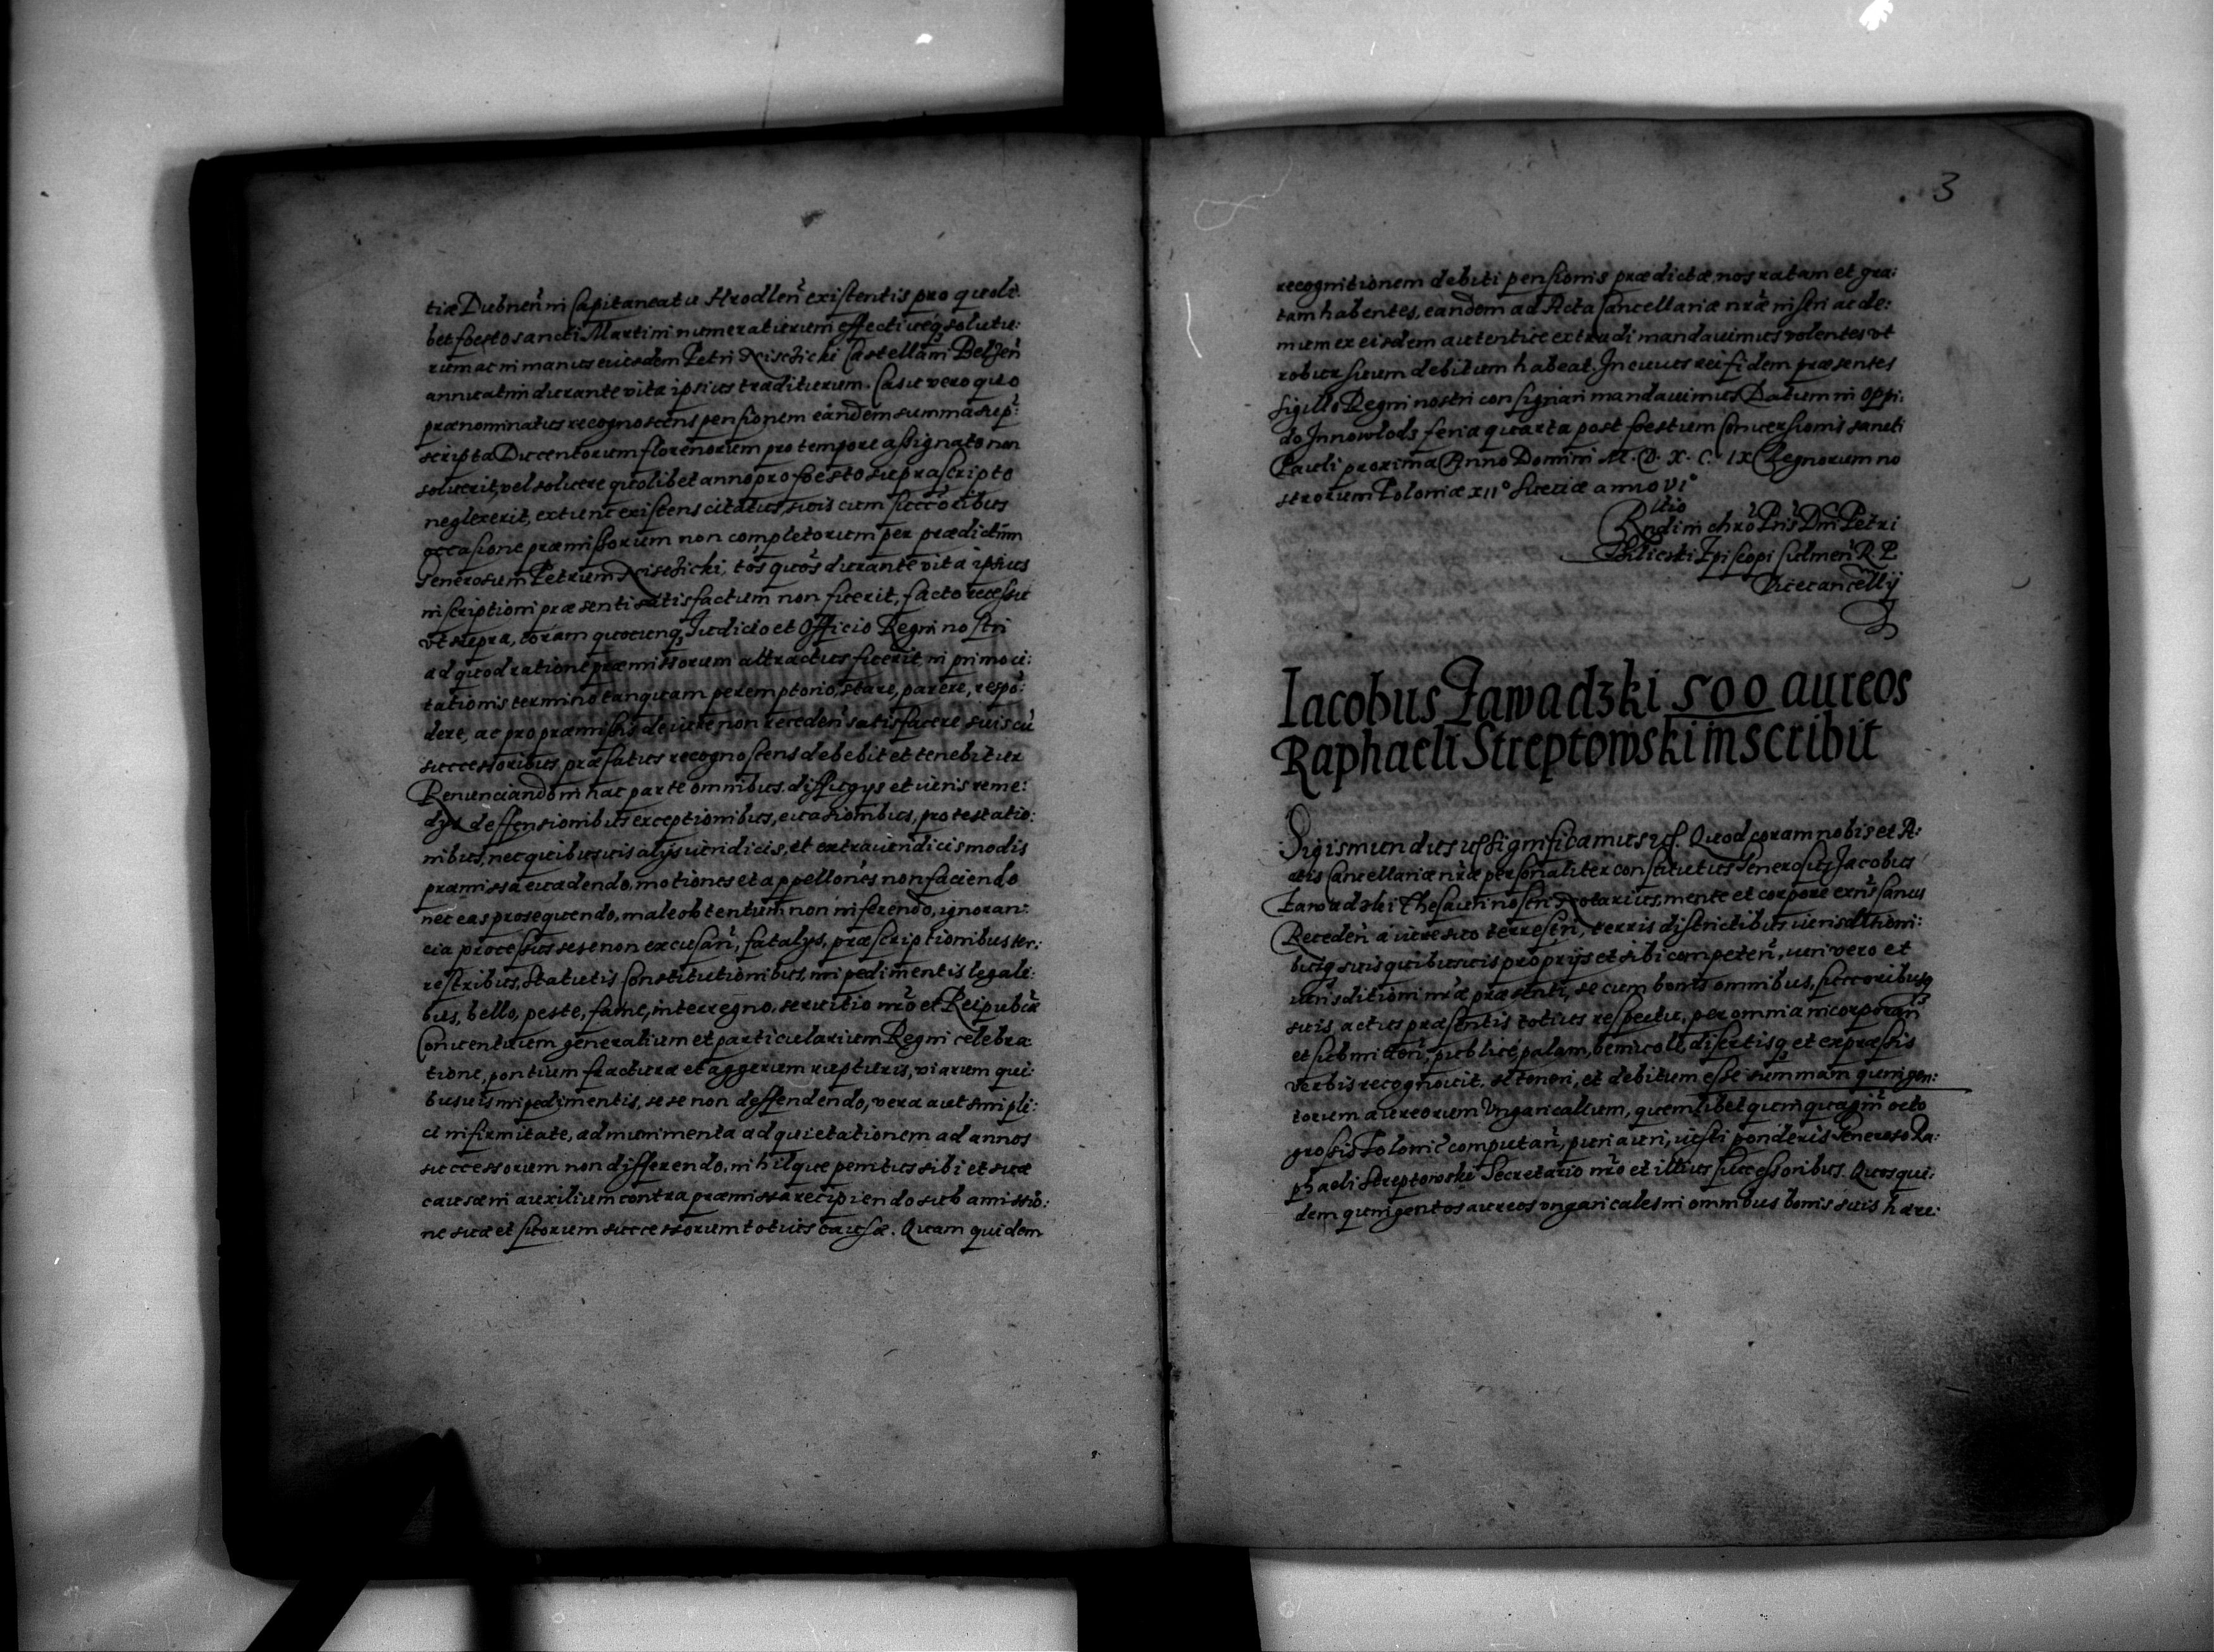 tiæ Dubnen̄ in Capitaneatu Hrodlen̄ existentis pro quoli:
bet foesto sancti Martini numeraturum effectiueq̃ solutu:
rum ac in manus eiusdem Petri Castellani Belzen̄
annuatim durante vita ipsius traditurum. Casu vero quo
prænominatus recognoscens pensionem eandem summa sup:
scripta Ducentorum florenorum pro tempore assignato non
soluerit, vel soluere quolibet anno pro foesto suprascripto
neglexerit, extunc existens citatus, suis cum succoribus
occasione præmissorum non completorum per prædictum
Generosum Petrum tos quos durante vita ipsius
inscriptioni præsenti satisfactum non fuerit, facto recessu
vt supra, coram quocunq̃ Iudicio et Officio Regni nostri
ad quod ratione præmissorum attractus fuerit in primo ci:
tationis termino tanquam peremptorio, stare, parere, respō:
dere, ac pro præmissis de iure non receden̄ satisfacere suis cū
successoribus, præfatus recognoscens debebit et tenebitur
Renunciando in hac parte omnibus diffugys et iuris reme:
dys deffensionibus exceptionibus, euasionibus, protestatio:
nibus, nec quibusuis alys iuridicis, et extraiuridicis modis
præmissa euadendo, motiones et appellōnes non faciendo
nec eas prosequendo, male obtentum non inferendo, ignoran:
cia processus sese non excusan̄, fatalys, præscriptionibus ter:
restribus, Statutis Constitutionibus, impedimentis legali:
bus, bello, peste, fame, interregno, seruitio nr̄o et Reipublicæ
Conuentuum generalium et particularium Regni celebra:
tione, pontium fracturæ et aggerum rupturis, viarum qui:
busuis impedimentis, sese non deffendendo, vera aut simpli:
ci infirmitate, ad munimenta ad quietationem ad annos
successorum non differendo, nihilque penitus sibi et suæ
causæ in auxilium contra præmissa recipiendo sub amissio:
ne suæ et suorum successorum totius causæ. Quam quidem
3
recognitionem debiti pensionis prædictæ, nos ratam et gra:
tam habentes, eandem ad Acta Cancellariæ nr̄æ inseri ac de:
mum ex eisdem autentice extradi mandauimus volentes vt
robur suum debitum habeat. In cuius rei fidem præsentes
sigillo Regni nostri consignari mandauimus. Datum in Oppi:
do Innowlods feria quarta post foestum Conuersionis sancti
Pauli proxima Anno Domini M. D. X. C. IX Regnorum no
strorum Poloniæ XII° Sueciæ anno VI°
Rndi in chrō Pris Dn̄i Petri
Tiliczki Episcopi Culmen̄ R. P.
Vicecancellij
Iacobus Zawadzki 500 aureos
Raphaeli Streptowski inscribit
Sigismundus usf Significamus usf. Quod coram nobis et A:
ctis Cancellariæ nr̄æ personaliter constitutus Generosus Jacobus
Zawadzki Thesauri nostri Notarius, mente et corpore exn̄s sanus
Receden̄ a iure suo terrestri, terris districtibus iurisditioni:
busq̃ suis quibusuis proprijs et sibi competen̄, iuri vero et
iurisditioni nr̄æ præsenti, se cum bonis omnibus, succoribusq̃
suis, actus præsentis totius respectu, per omnia incorporan̄
et submitten̄, publice, palam, beniuole disertisq̃ et expræssis
verbis recognouit. se teneri, et debitum esse summam quingen:
torum aureorum Vngaricalium, quemlibet quinquagin̄ octo
grossis Polonic̄ computan̄, puri auri, iusti ponderis Generoso Ra:
phaeli Streptowski Secretario nr̄o et illius successoribus. Quos qui:
dem quingentos aureos vngaricales in omnibus bonis suis hære: